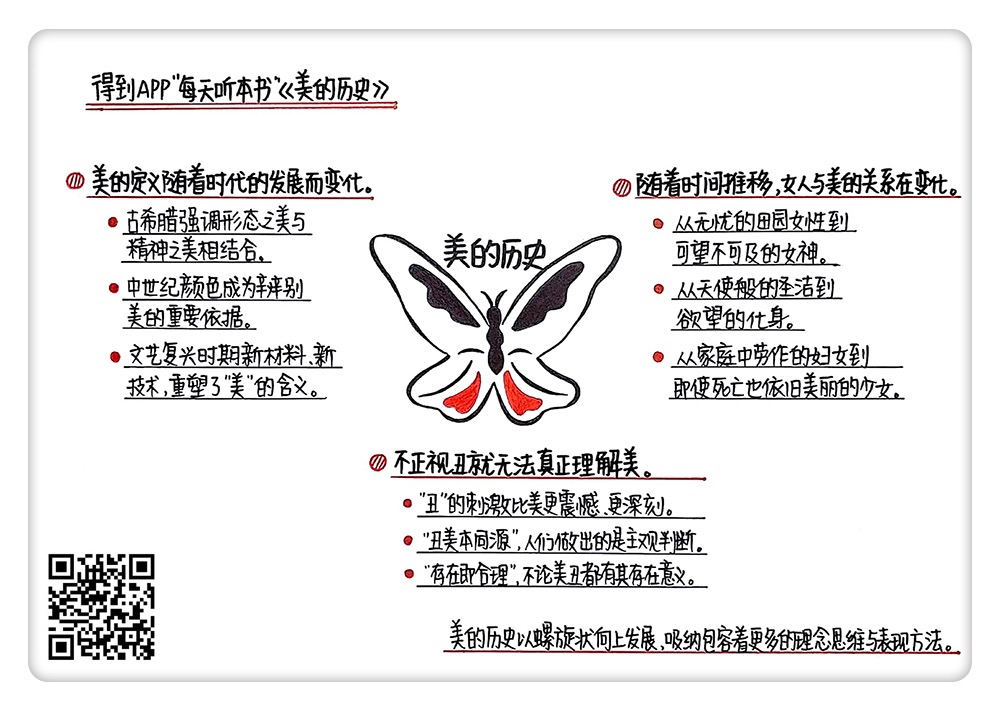 得到APP“每天听本书”《美的历史》
美的定义随着时代的发展而变化。
古希腊强调形态之美与
精神之美相结合。
中世纪颜色成为辨别
美的重要依据。
文艺复兴时期新材料、新
技术,重塑了“美”的含义。
美的历史
随着时间推移,女人与美的关系在变化。
从无忧的田园女性到
可望不可及的女神。
从天使般的圣洁到
欲望的化身。
从家庭中劳作的妇女到
即使死亡也依旧美丽的少女。
不正视丑就无法真正理解美。
“丑”的刺激比美更震憾、更深刻。
“丑美本同源”,人们做出的是主观判断。
“存在即合理”,不论美丑都有其存在意义。
美的历史以螺旋状向上发展,吸纳包容着更多的理念思维与表现方法。